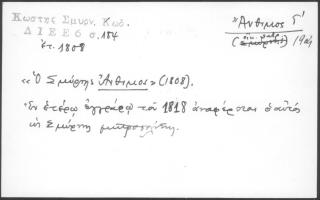 Κωστής Σμυρν. Κωδ.
ΔΙΕΕ 6 σ. 184
ἔτ. 1808
Ἄνθιμος Γ΄
«Ὁ Σμύρνης Ἄνθιμος» (1808).
ἐν ἑτέρῳ ἐγγράφῳ τοῦ 1818 ἀναφέρεται ὁ αὐτός
ὡς Σμύρνης μητροπολίτης.